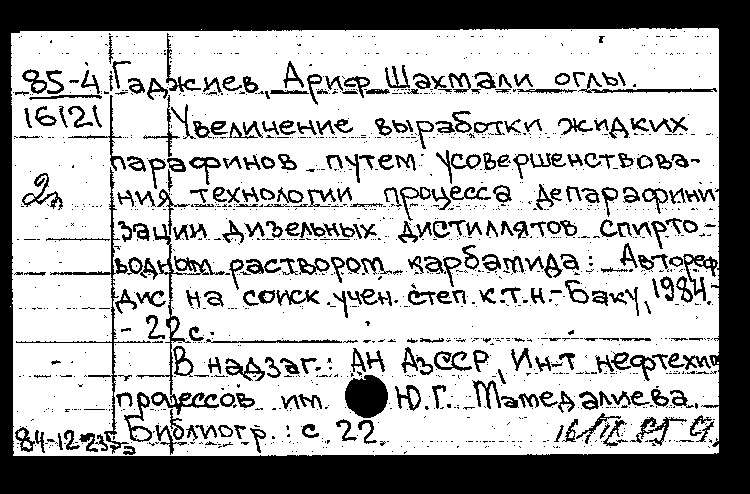 85-4 Гаджиев, Ариф Шахмали оглы.
16121
Увеличение выработки жидких
парафинов путем усовершенствова-
2л ния технологии процесса депарафини
зации дизельных дистиллятов спирто-
водном раствором карбамида: Автореф
дис на соиск учен. степ к.т.н.-Баку, 1984.-
- 22 с.
В надзаг.: АН АзССР, Ин-т нефтехим
процессов им Ю.Г. Мамедалиева.
Библиогр.: с 22.
84-12